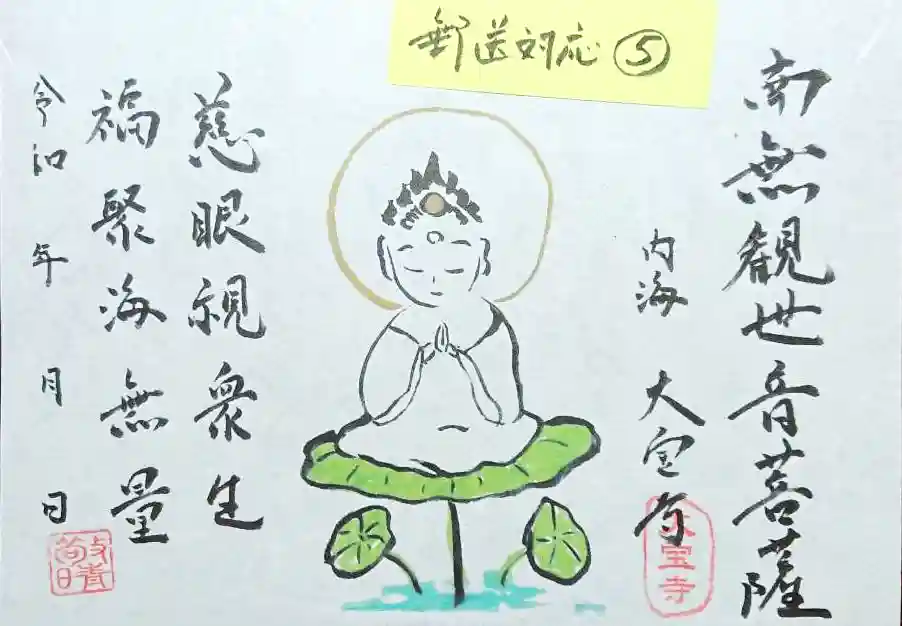 郵送対応⑤
南無観世音菩薩
内海 大宝寺
大宝寺
慈眼視衆生
福聚海無量
令和 年 月 日